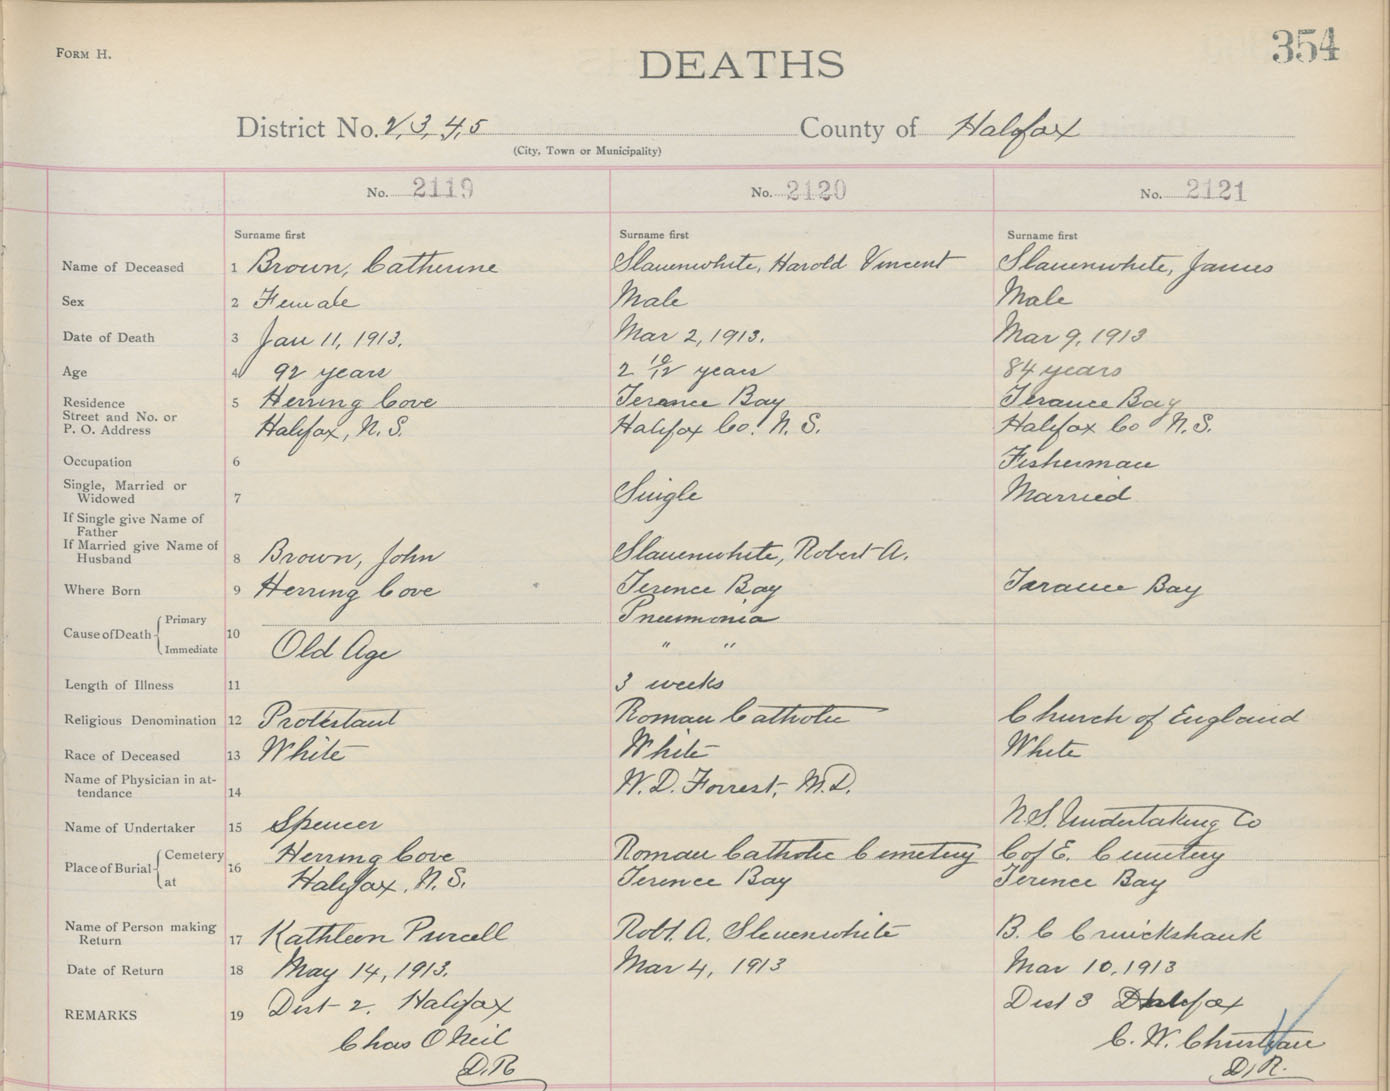 FORM H.
354
DEATHS
District No. 2, 3, 4, 5
County of Halifax
(City, Town or Municipality)
No. 2119
No. 2120
No. 2121
Surname first
Surname first
Surname first
Name of Deceased 1 Brown, Catherine Slauenwhite, Harold Vincent Slauenwhite, James
Sex 2 Female Male Male
Date of Death 3 Jan 11, 1913. Mar 2, 1913. Mar 9, 1913
Age 4 92 years 2 10/12 years 84 years
Residence 5 Herring Cove Terance Bay Terance Bay
Street and No. or
P. O. Address Halifax, N.S. Halifax Co. N.S. Halifax Co N.S.
Occupation 6 Fisherman
Single, Married or
Widowed 7 Single Married
If Single give Name of
Father
If Married give Name of
Husband 8 Brown, John Slauenwhite, Robert A.
Where Born 9 Herring Cove Terence Bay Tarance Bay
Cause of Death Primary 10 Pneumonia
Immediate Old Age " "
Length of Illness 11 3 weeks
Religious Denomination 12 Protestant Roman Catholic Church of England
Race of Deceased 13 White White White
Name of Physician in at-
tendance 14 W. D. Forrest, M.D.
Name of Undertaker 15 Spencer N.S. Undertaking Co
Place of Burial Cemetery 16 Herring Cove Roman Catholic Cemetery C of E. Cemetery
at Halifax, N.S. Terence Bay Terence Bay
Name of Person making
Return 17 Kathleen Purcell Robt. A. Slauenwhite B. C Cruickshank
Date of Return 18 May 14, 1913. Mar 4, 1913 Mar 10, 1913
REMARKS 19 Dist 2. Halifax Dist 3 Halifax
Chas O'Neil C. W. Christian
D.R. D.R.